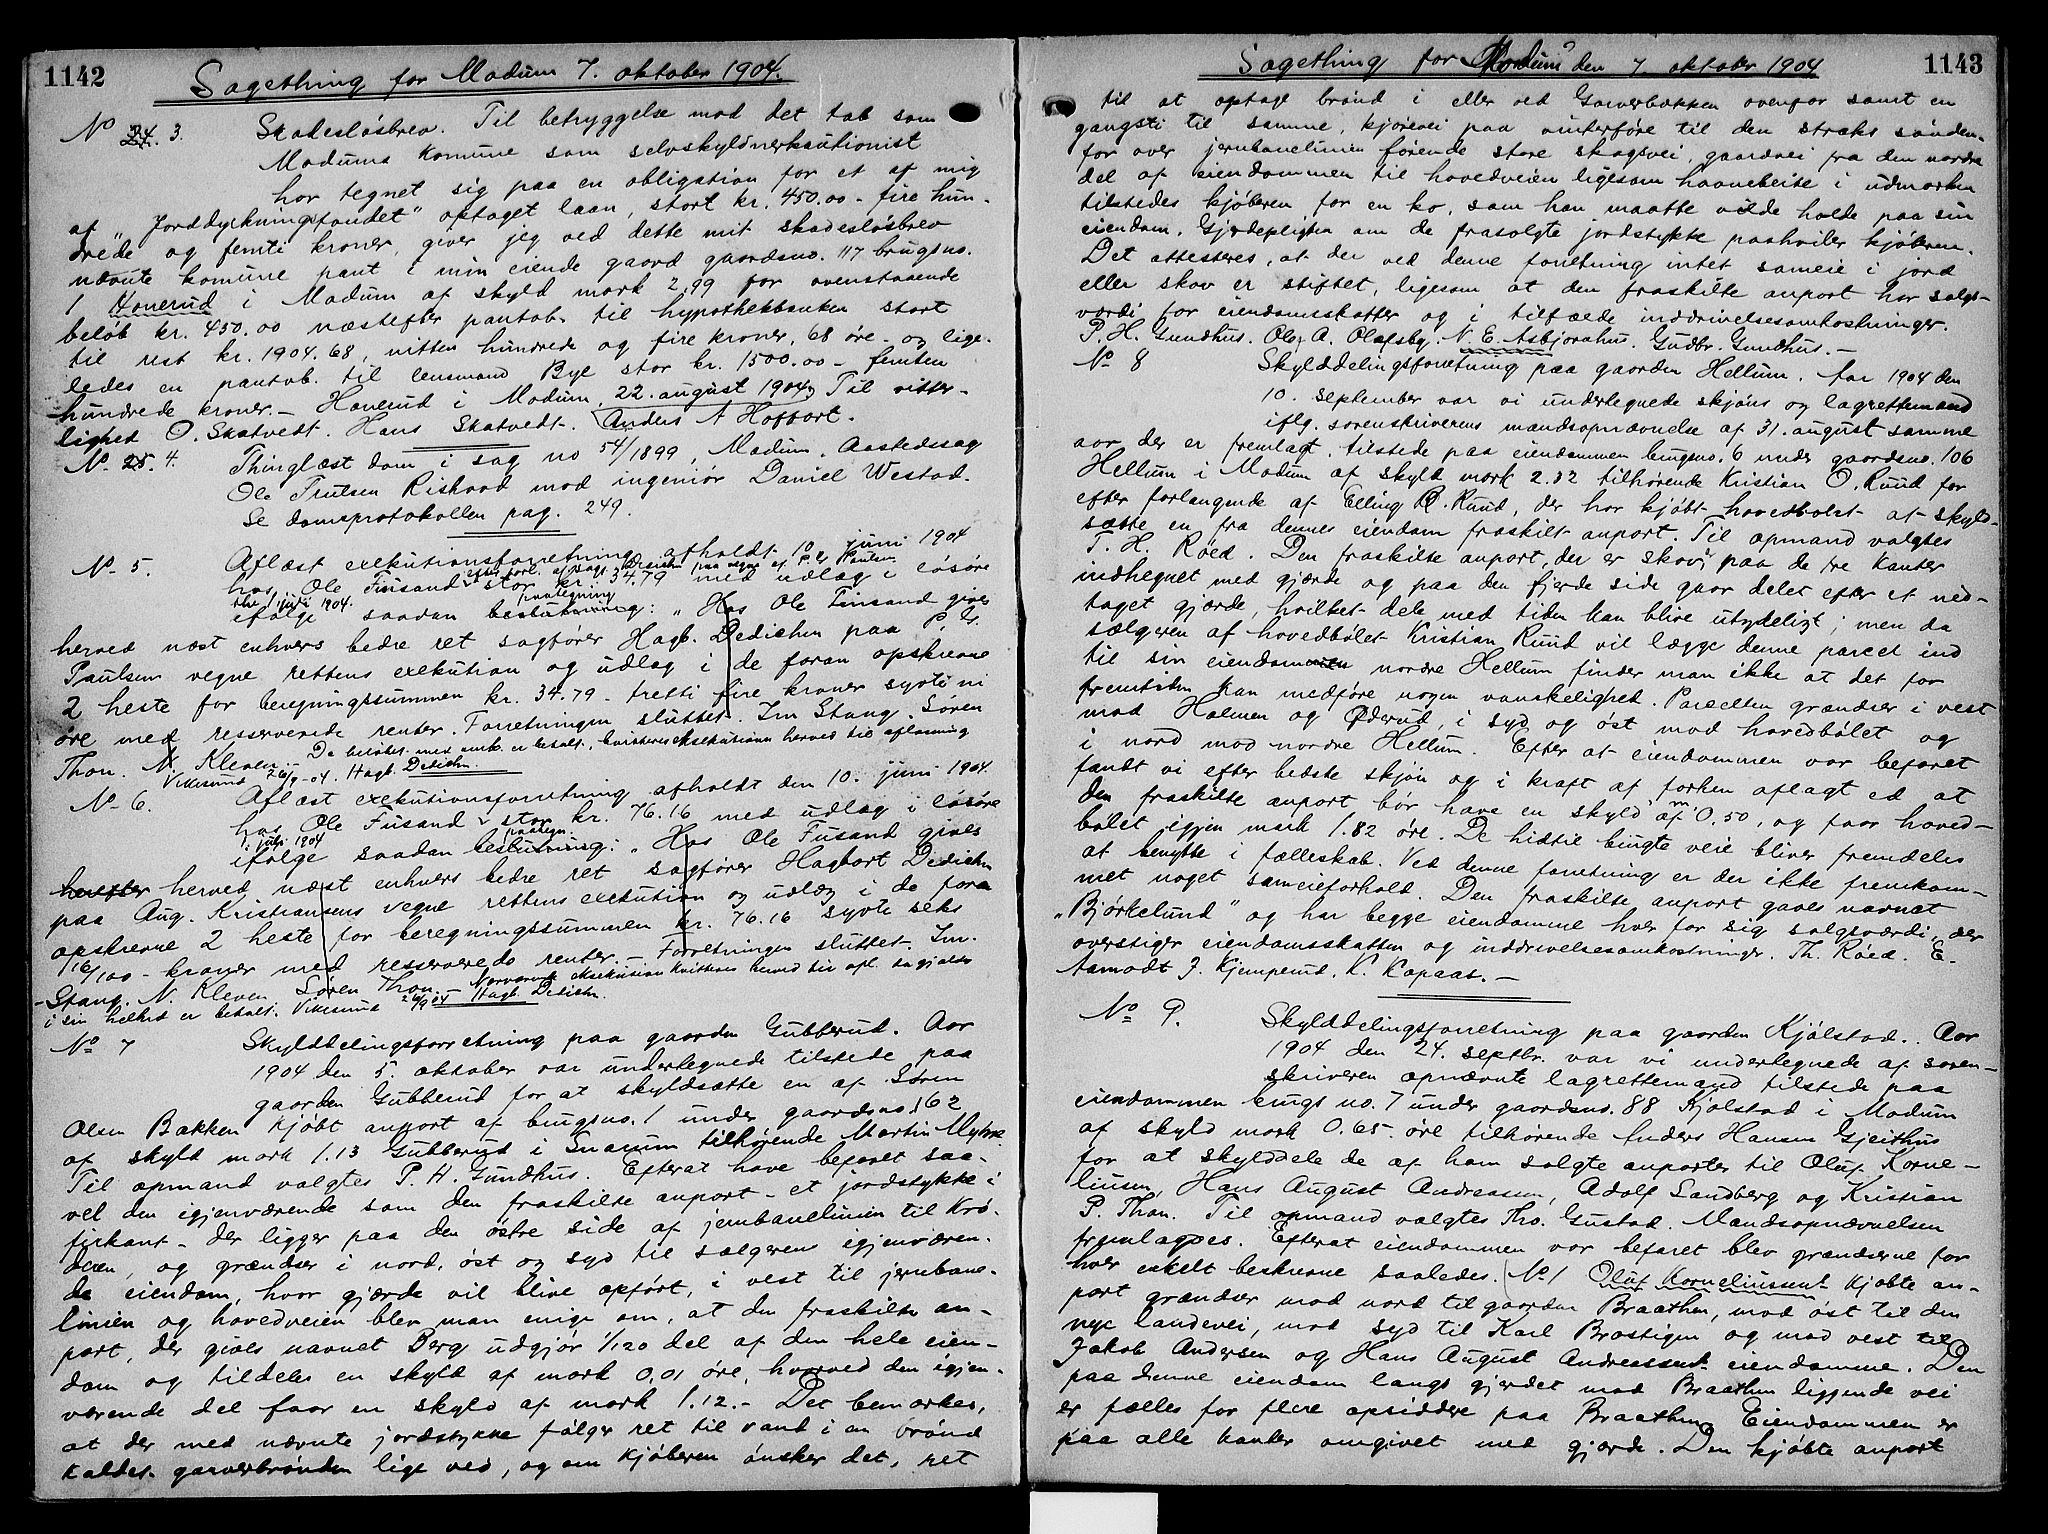 1142
Sagething for Modum 7. oktober 1904.
No 24. 3. Skadesløsbrev. Til betryggelse mod det tab som
Modums Komune som selvskyldnerkautionist
har tegnet sig paa en obligation for et af mig
af "Jorddyrkningsfondet" optaget laan, stort kr. 450.00 - fire hun-
drede og femti kroner, giver jeg ved dette mit skadesløsbrev
nævnte komune pant i min eiende gaard gaardsno. 117 brugsno.
1 Honerud i Modum af skyld mark 2,99 for ovenstaaende
beløb kr. 450.00 næstefter pantob. til hypothekbanken stort
til rest kr. 1904.68, nitten hundrede og fire kroner, 68 øre - og lige-
ledes en pantob. til lensmand Bye stor kr. 1500.00 - femten
hundrede kroner. - Honerud i Modum, 22. august 1904. Til vitter-
lighed O. Skatvedt. Hans Skatvedt. Anders A Hoffart.
No. 25. 4. Thinglæst dom i sag no 54/1899, Modum, Aastedssag
Ole Trulsen Rishovd mod ingeniør Daniel Westad.
Se domsprotokollen pag. 249.
No 5. Aflæst exekutionsforretning afholdt 10. juni 1904
efter forl. af Hagb. Dedichen paa vegne af P. L. Paulsen
hos Ole Fusand stor kr. 34.79 med udlæg i løsøre
1. juli 1904. paategning
ifølge saadan beslutning: "Hos Ole Fusand gives
herved næst enhvers bedre ret sagfører Hagb. Dedichen paa P. L.
Paulsen vegne rettens exekution og udlæg i de foran opskrevne
2 heste for beregningssummen kr. 34.79 - tretti fire kroner sytti ni
øre med resserverede renter. Forretningen sluttet. Im Stang. Søren
Thon. N. Kleven. - Da beløbet med omk. er betalt, kvitteres exekutionen herved til aflæsning
Vikesund 26/9-04. Hagb. Dedichen.
No 6. Aflæst exekutionsforretning afholdt den 10. juni 1904
hos Ole Fusand stor kr. 76.16 med udlæg i løsøre
1. juli 1904 paategn.
ifølge saadan beslutning: "Hos Ole Fusand gives
herefter herved næst enhvers bedre ret sagfører Hagbart Dedichen
paa Aug. Kristiansens vegne rettens exekution og udlæg i de foran
opskrevne 2 heste for beregningssummen kr. 76.16 sytti seks
16/100 - kroner med resserverede renter. - Forretningen sluttet. Im.
Stang. N. Kleven Søren Thon. - Nærværende eksekution kvitteres herved til afl. da gjælden
i sin helhed er betalt. Vikesund 26/9 04 Hagb. Dedichen.
No 7 Skylddelingsforretning paa gaarden Gubberud. Aar
1904 den 5. oktober var undertegnede tilstede paa
gaarden Gubberud for at skyldsætte en af Søren
Olsen Bakken kjøbt anport af brugsno. 1 under gaardsno. 162
af skyld mark 1.13 Gubberud i Snarum tilhørende Martin Myhre.
Til opmand valgtes P. H. Gundhus. Efterat have befaret saa-
vel den igjenværende som den fraskilte anport - et jordstykke i
firkant - der ligger paa den østre side af jernbanelinien til Krø-
deren, og grændser i nord, øst og syd til sælgerens igjenværen-
de eiendom, hvor gjærde vil blive opført, i vest til jernbane-
linien og hovedveien blev man enige om, at den fraskilte an-
port, der gives navnet Berg udgjør 1/120 del af den hele eien-
dom og tildeles en skyld af mark 0,01 øre, hvorved den igjen-
værende del faar en skyld af mark 1.12. - Det bemærkes,
at der med nævnte jordstykke følger ret til vand i en brønd
kaldet garverbrønden lige ved, og om kjøberen ønsker det, ret
1143
Sagething for Modum den 7. oktober 1904
til at optage brønd i eller ved Garverbækken ovenfor samt en
gangsti til samme, kjørevei paa vinterføre til den straks sønden-
for over jernbanelinien førende store skogsvei, gaardvei fra den nordre
del af eiendommen til hovedveien ligesom havnebeite i udmarken
tilstedes kjøberen for en ko, som han maatte vilde holde paa sin
eiendom. Gjerdepligten om de frasolgte jordstykke paahviler kjøberen.
Det attesteres, at der ved denne forretning intet sameie i jord
eller skov er stiftet, ligesom at den fraskilte anport har salgs-
værdi for eiendomsskatter og i tilfælde inddrivelsesomkostninger.
P. H. Gundhus. Ole A. Olafsby. N. E. Asbjørnhus. Gudbr. Gundhus. -
No 8 Skylddelingsforretning paa gaarden Hellum. Aar 1904 den
10. september var vi undertegnede skjøns og lagrettemænd
iflg. sorenskriverens mandsopnævnelse af 31. august samme
aar der er fremlagt, tilstede paa eiendommen brugsno. 6 under gaardsno. 106
Hellum i Modum af skyld mark 2.32 tilhørende Kristian O. Ruud for
efter forlangende af Elling O. Ruud, der har kjøbt hovedbølet at skyld-
sætte en fra dennes eiendom fraskilt anport. Til opmand valgtes
T. H. Røed. Den fraskilte anport, der er skov, paa de tre kanter
indhegnet med gjærde og paa den fjerde side gaar delet efter et ned-
taget gjærde, hvilket dele med tiden kan blive utydeligt; men da
sælgeren af hovedbølet Kristian Ruud vil lægge denne parcel ind
til sin eiendommen nordre Hellum finder man ikke at det for
fremtiden kan medføre nogen vanskelighed. Parcellen grændser i vest
mod Holmen og Øderud, i syd og øst mod hovedbølet og
i nord mod nordre Hellum. Efter at eiendommen var befaret
fandt vi efter bedste skjøn og i kraft af forhen aflagt ed at
den fraskilte anport bør have en skyld af m. 0.50, og faar hoved-
bølet igjen mark 1.82 øre. De hidtil brugte veie bliver fremdeles
at benytte i fælleskab. Ved denne forretning er der ikke fremkom-
met noget sameieforhold. Den fraskilte anport gaves navnet
"Bjørkelund" og har begge eiendomme hver for sig salgsværdi, der
overstiger eiendomsskatten og inddrivelsesomkostninger. Th. Røed. E.
Aamodt J. Kjemperud. K. Kopaas. -
No 9. Skylddelingsforretning paa gaarden Kjølstad. Aar
1904 den 24. septbr. var vi undertegnede af soren-
skriveren opnævnte lagrettemænd tilstede paa
eiendommen brugs no. 7 under gaardsno. 88 Kjølstad i Modum
af skyld mark 0.65 øre tilhørende Anders Hansen Gjeithus
for at skylddele de af ham solgte anporter til Oluf Korne-
liusen, Hans August Andreassen, Adolf Sandberg og Kristian
P. Thon. Til opmand valgtes Tho. Gustad. Mandsopnævnelsen
fremlagdes. Efterat eiendommen var befaret blev grændserne for
hver enkelt beskrevne saaledes. No 1 Oluf Korneliussens kjøbte an-
port grændser mod nord til gaarden Braathen, mod øst til den
nye landevei, mod syd til Karl Brostigen og mod vest til
Jakob Andersen og Hans August Andreassens eiendomme. Den
paa denne eiendom langs gjerdet mod Braathen liggende vei
er fælles for flere opsiddere paa Braathen. Eiendommen er
paa alle kanter omgivet med gjærde. Den kjøbte anport